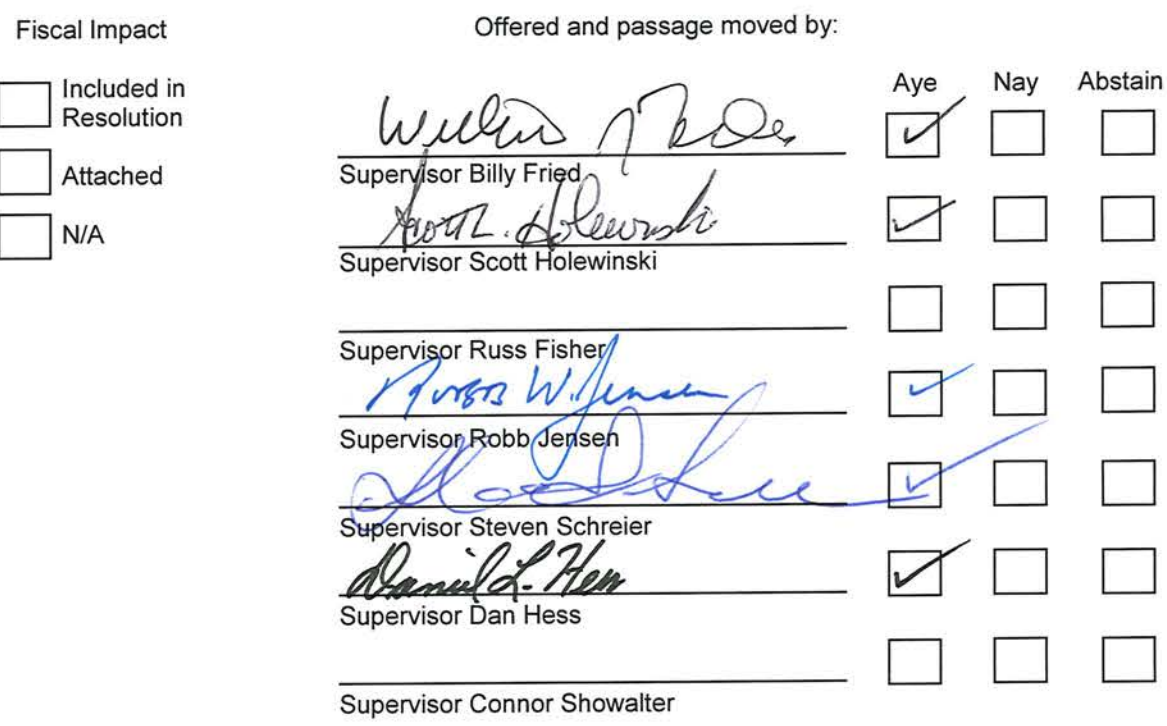 Fiscal Impact
Included in
Resolution
Attached
N/A
Offered and passage moved by:
Aye Nay Abstain
Supervisor Billy Fried
Scott L. Holewinski
Supervisor Scott Holewinski
Supervisor Russ Fisher
W. Jensen
Supervisor Robb Jensen
Supervisor Steven Schreier
Daniel L. Hess
Supervisor Dan Hess
Supervisor Connor Showalter